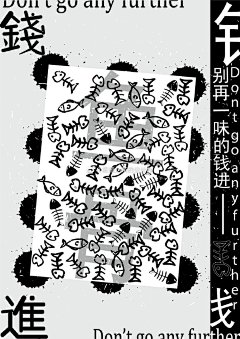 Don't go any further
錢
進
钅
戋
别再一味的钱进——
Don't go any further
Don't go any further